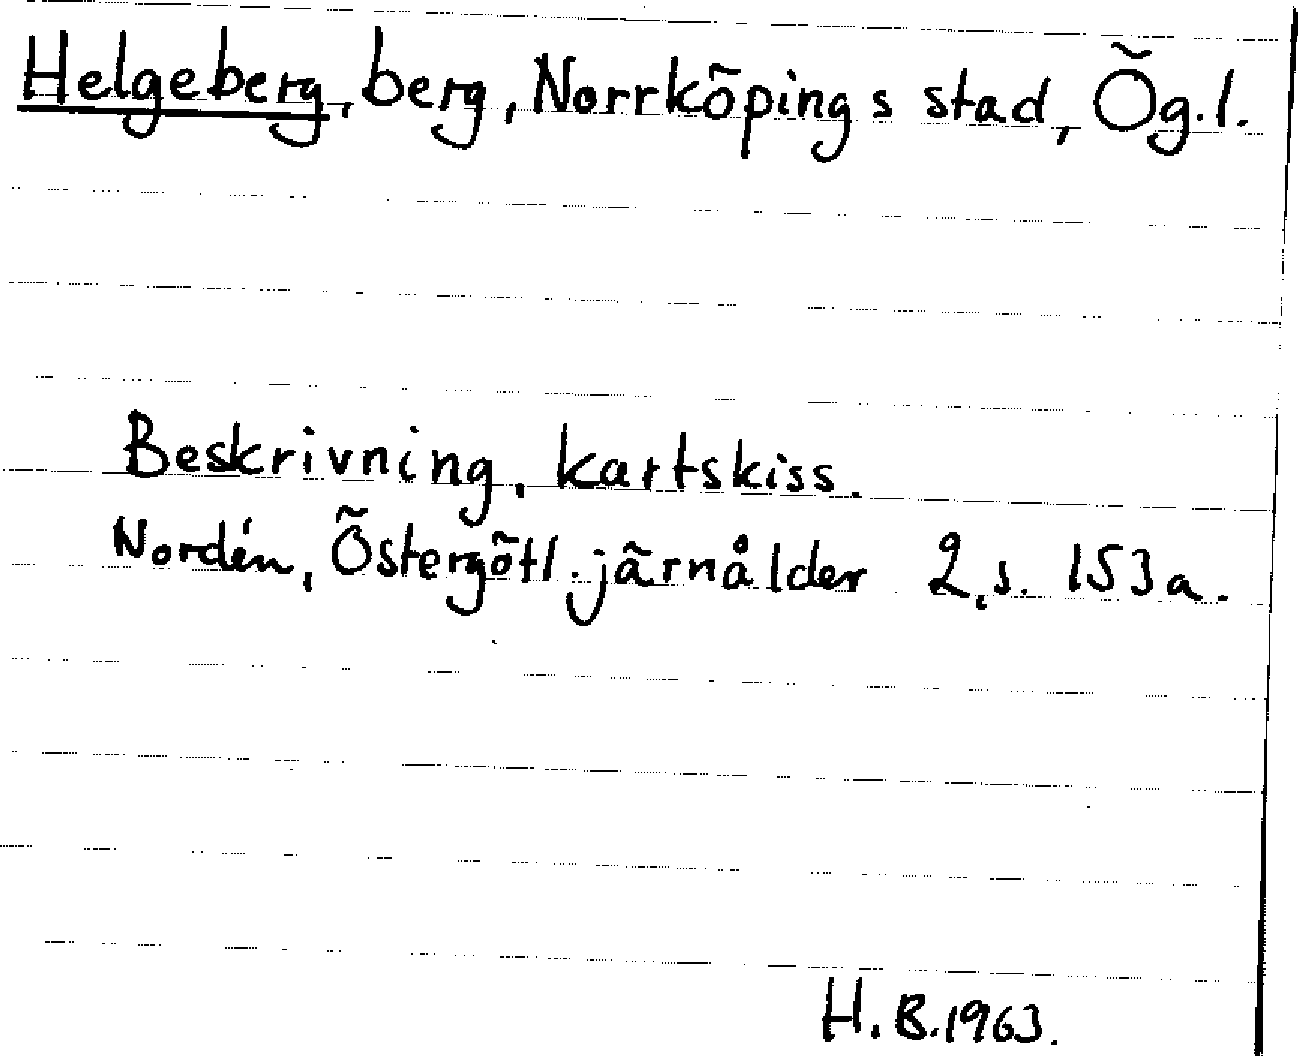 Helgeberg, berg, Norrköpings stad, Ög.l.
Beskrivning, kartskiss.
Nordén, Östergötl. järnålder 2, s. 153a.
H.B. 1963.